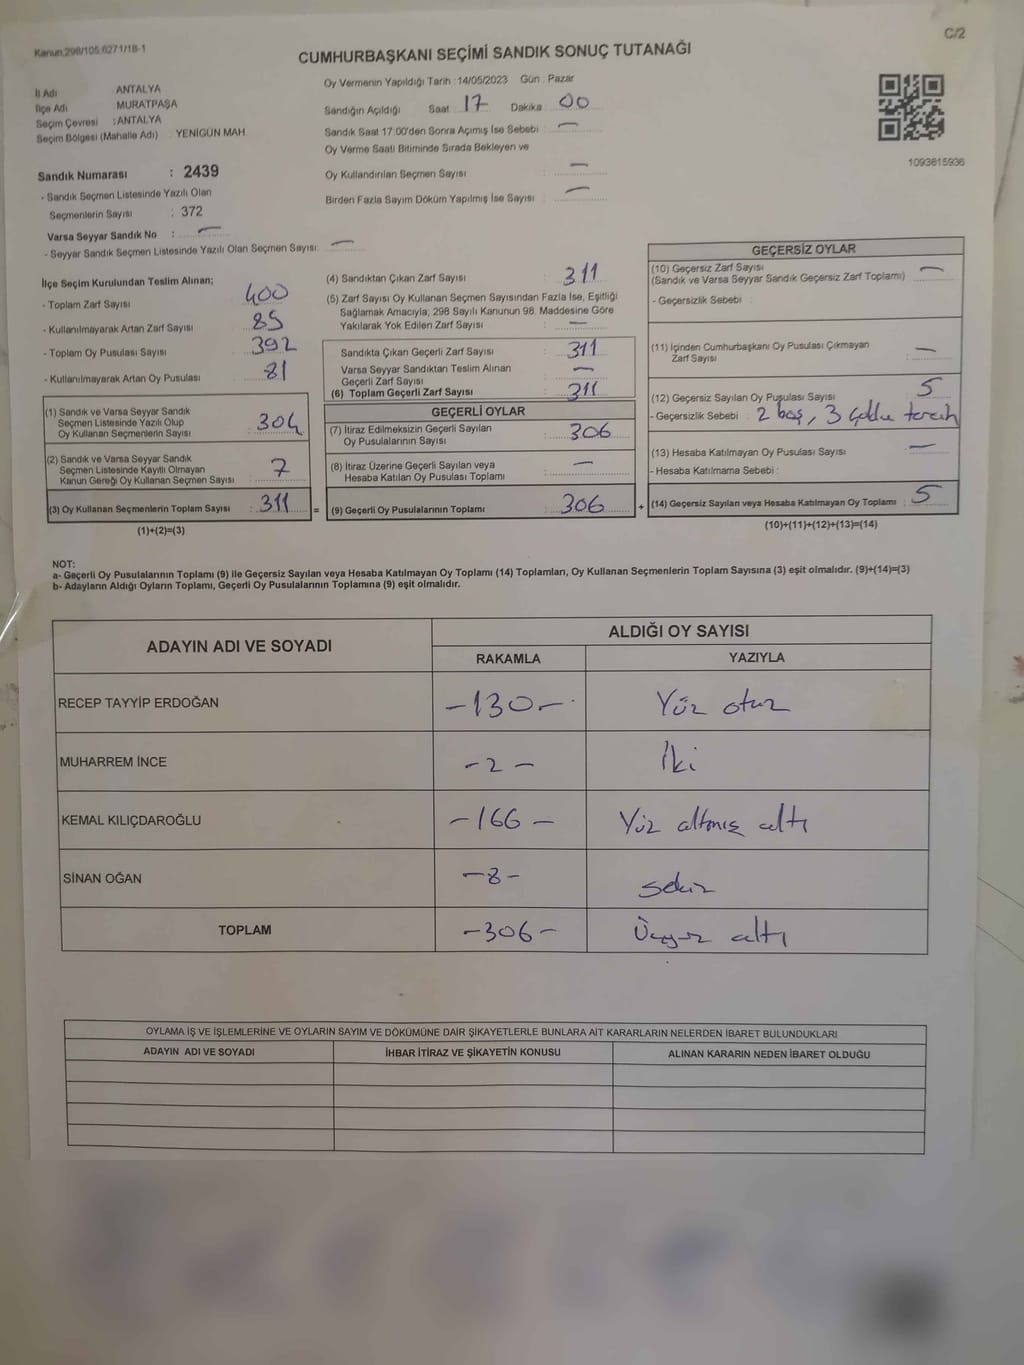 Kanun.298/105,6271/18-1
C/2
CUMHURBAŞKANI SEÇİMİ SANDIK SONUÇ TUTANAĞI
İl Adı ANTALYA
İlçe Adı MURATPAŞA
Seçim Çevresi :ANTALYA
Seçim Bölgesi (Mahalle Adı) : YENİGÜN MAH.
Sandık Numarası : 2439
- Sandık Seçmen Listesinde Yazılı Olan
Seçmenlerin Sayısı : 372
Varsa Seyyar Sandık No : —
- Seyyar Sandık Seçmen Listesinde Yazılı Olan Seçmen Sayısı: —
Oy Vermenin Yapıldığı Tarih :14/05/2023 Gün : Pazar
Sandığın Açıldığı Saat 17 Dakika 00
Sandık Saat 17:00'den Sonra Açımış İse Sebebi : —
Oy Verme Saati Bitiminde Sırada Bekleyen ve
Oy Kullandırılan Seçmen Sayısı : —
Birden Fazla Sayım Döküm Yapılmış İse Sayısı : —
1093815936
İlçe Seçim Kurulundan Teslim Alınan;
- Toplam Zarf Sayısı 400
- Kullanılmayarak Artan Zarf Sayısı 85
- Toplam Oy Pusulası Sayısı 392
- Kullanılmayarak Artan Oy Pusulası 81
(1) Sandık ve Varsa Seyyar Sandık
Seçmen Listesinde Yazılı Olup
Oy Kullanan Seçmenlerin Sayısı : 304
(2) Sandık ve Varsa Seyyar Sandık
Seçmen Listesinde Kayıtlı Olmayan
Kanun Gereği Oy Kullanan Seçmen Sayısı : 7
(3) Oy Kullanan Seçmenlerin Toplam Sayısı : 311 =
(1)+(2)=(3)
(4) Sandıktan Çıkan Zarf Sayısı : 311
(5) Zarf Sayısı Oy Kullanan Seçmen Sayısından Fazla İse, Eşitliği
Sağlamak Amacıyla; 298 Sayılı Kanunun 98. Maddesine Göre
Yakılarak Yok Edilen Zarf Sayısı : —
Sandıkta Çıkan Geçerli Zarf Sayısı : 311
Varsa Seyyar Sandıktan Teslim Alınan
Geçerli Zarf Sayısı : —
(6) Toplam Geçerli Zarf Sayısı : 311
GEÇERLİ OYLAR
(7) İtiraz Edilmeksizin Geçerli Sayılan
Oy Pusulalarının Sayısı : 306
(8) İtiraz Üzerine Geçerli Sayılan veya
Hesaba Katılan Oy Pusulası Toplamı : —
(9) Geçerli Oy Pusulalarının Toplamı : 306 +
GEÇERSİZ OYLAR
(10) Geçersiz Zarf Sayısı
(Sandık ve Varsa Seyyar Sandık Geçersiz Zarf Toplamı) : —
- Geçersizlik Sebebi :
(11) İçinden Cumhurbaşkanı Oy Pusulası Çıkmayan
Zarf Sayısı : —
(12) Geçersiz Sayılan Oy Pusulası Sayısı : 5
- Geçersizlik Sebebi : 2 boş, 3 çoklu tercih
(13) Hesaba Katılmayan Oy Pusulası Sayısı : —
- Hesaba Katılmama Sebebi :
(14) Geçersiz Sayılan veya Hesaba Katılmayan Oy Toplamı : 5
(10)+(11)+(12)+(13)=(14)
NOT:
a- Geçerli Oy Pusulalarının Toplamı (9) ile Geçersiz Sayılan veya Hesaba Katılmayan Oy Toplamı (14) Toplamları, Oy Kullanan Seçmenlerin Toplam Sayısına (3) eşit olmalıdır. (9)+(14)=(3)
b- Adayların Aldığı Oyların Toplamı, Geçerli Oy Pusulalarının Toplamına (9) eşit olmalıdır.
ADAYIN ADI VE SOYADI ALDIĞI OY SAYISI
RAKAMLA YAZIYLA
RECEP TAYYİP ERDOĞAN -130- Yüz otuz
MUHARREM İNCE -2- İki
KEMAL KILIÇDAROĞLU -166- Yüz altmış altı
SİNAN OĞAN -8- Sekiz
TOPLAM -306- Üçyüz altı
OYLAMA İŞ VE İŞLEMLERİNE VE OYLARIN SAYIM VE DÖKÜMÜNE DAİR ŞİKAYETLERLE BUNLARA AİT KARARLARIN NELERDEN İBARET BULUNDUKLARI
ADAYIN ADI VE SOYADI İHBAR İTİRAZ VE ŞİKAYETİN KONUSU ALINAN KARARIN NEDEN İBARET OLDUĞU